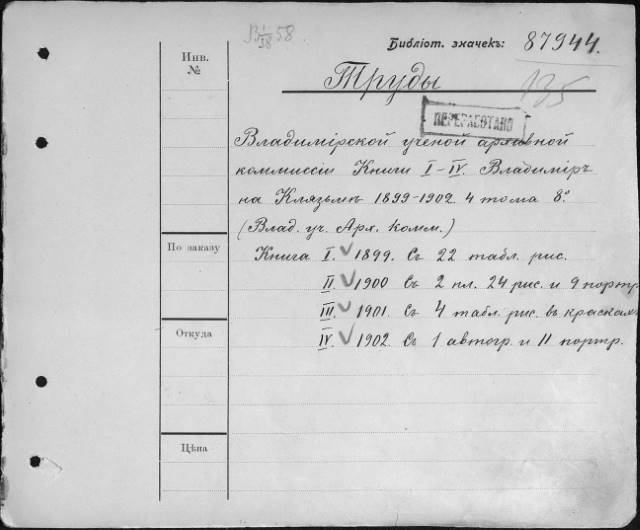 В 1/38 58.
Библіот. значекъ: 87944.
Инв. №
Труды
135
ПЕРЕРАБОТАНО
Владимірской ученой архивной
коммиссіи Книги I–IV. Владиміръ
на Клязьмѣ 1899-1902. 4 тома 8°
(Влад. уч. Арх. Комм.)
По заказу
Книга I. 1899. Съ 22 табл. рис.
II. 1900 Съ 2 пл. 24 рис. и 9 портр.
III. 1901. Съ 4 табл. рис. въ краскахъ
Откуда
IV. 1902. Съ 1 автогр. и 11 портр.
Цѣна